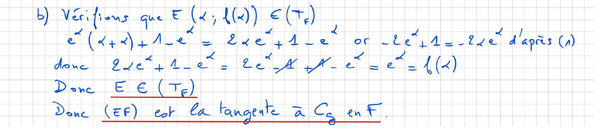 b) Vérifions que E (α ; f(α)) ∈ (T_F)
e^α (α+α) + 1 - e^α = 2αe^α + 1 - e^α or -2e^α + 1 = -2αe^α d'après (1)
donc 2αe^α + 1 - e^α = 2e^α - 1 + 1 - e^α = e^α = f(α)
Donc E ∈ (T_F)
Donc (EF) est la tangente à C_g en F.